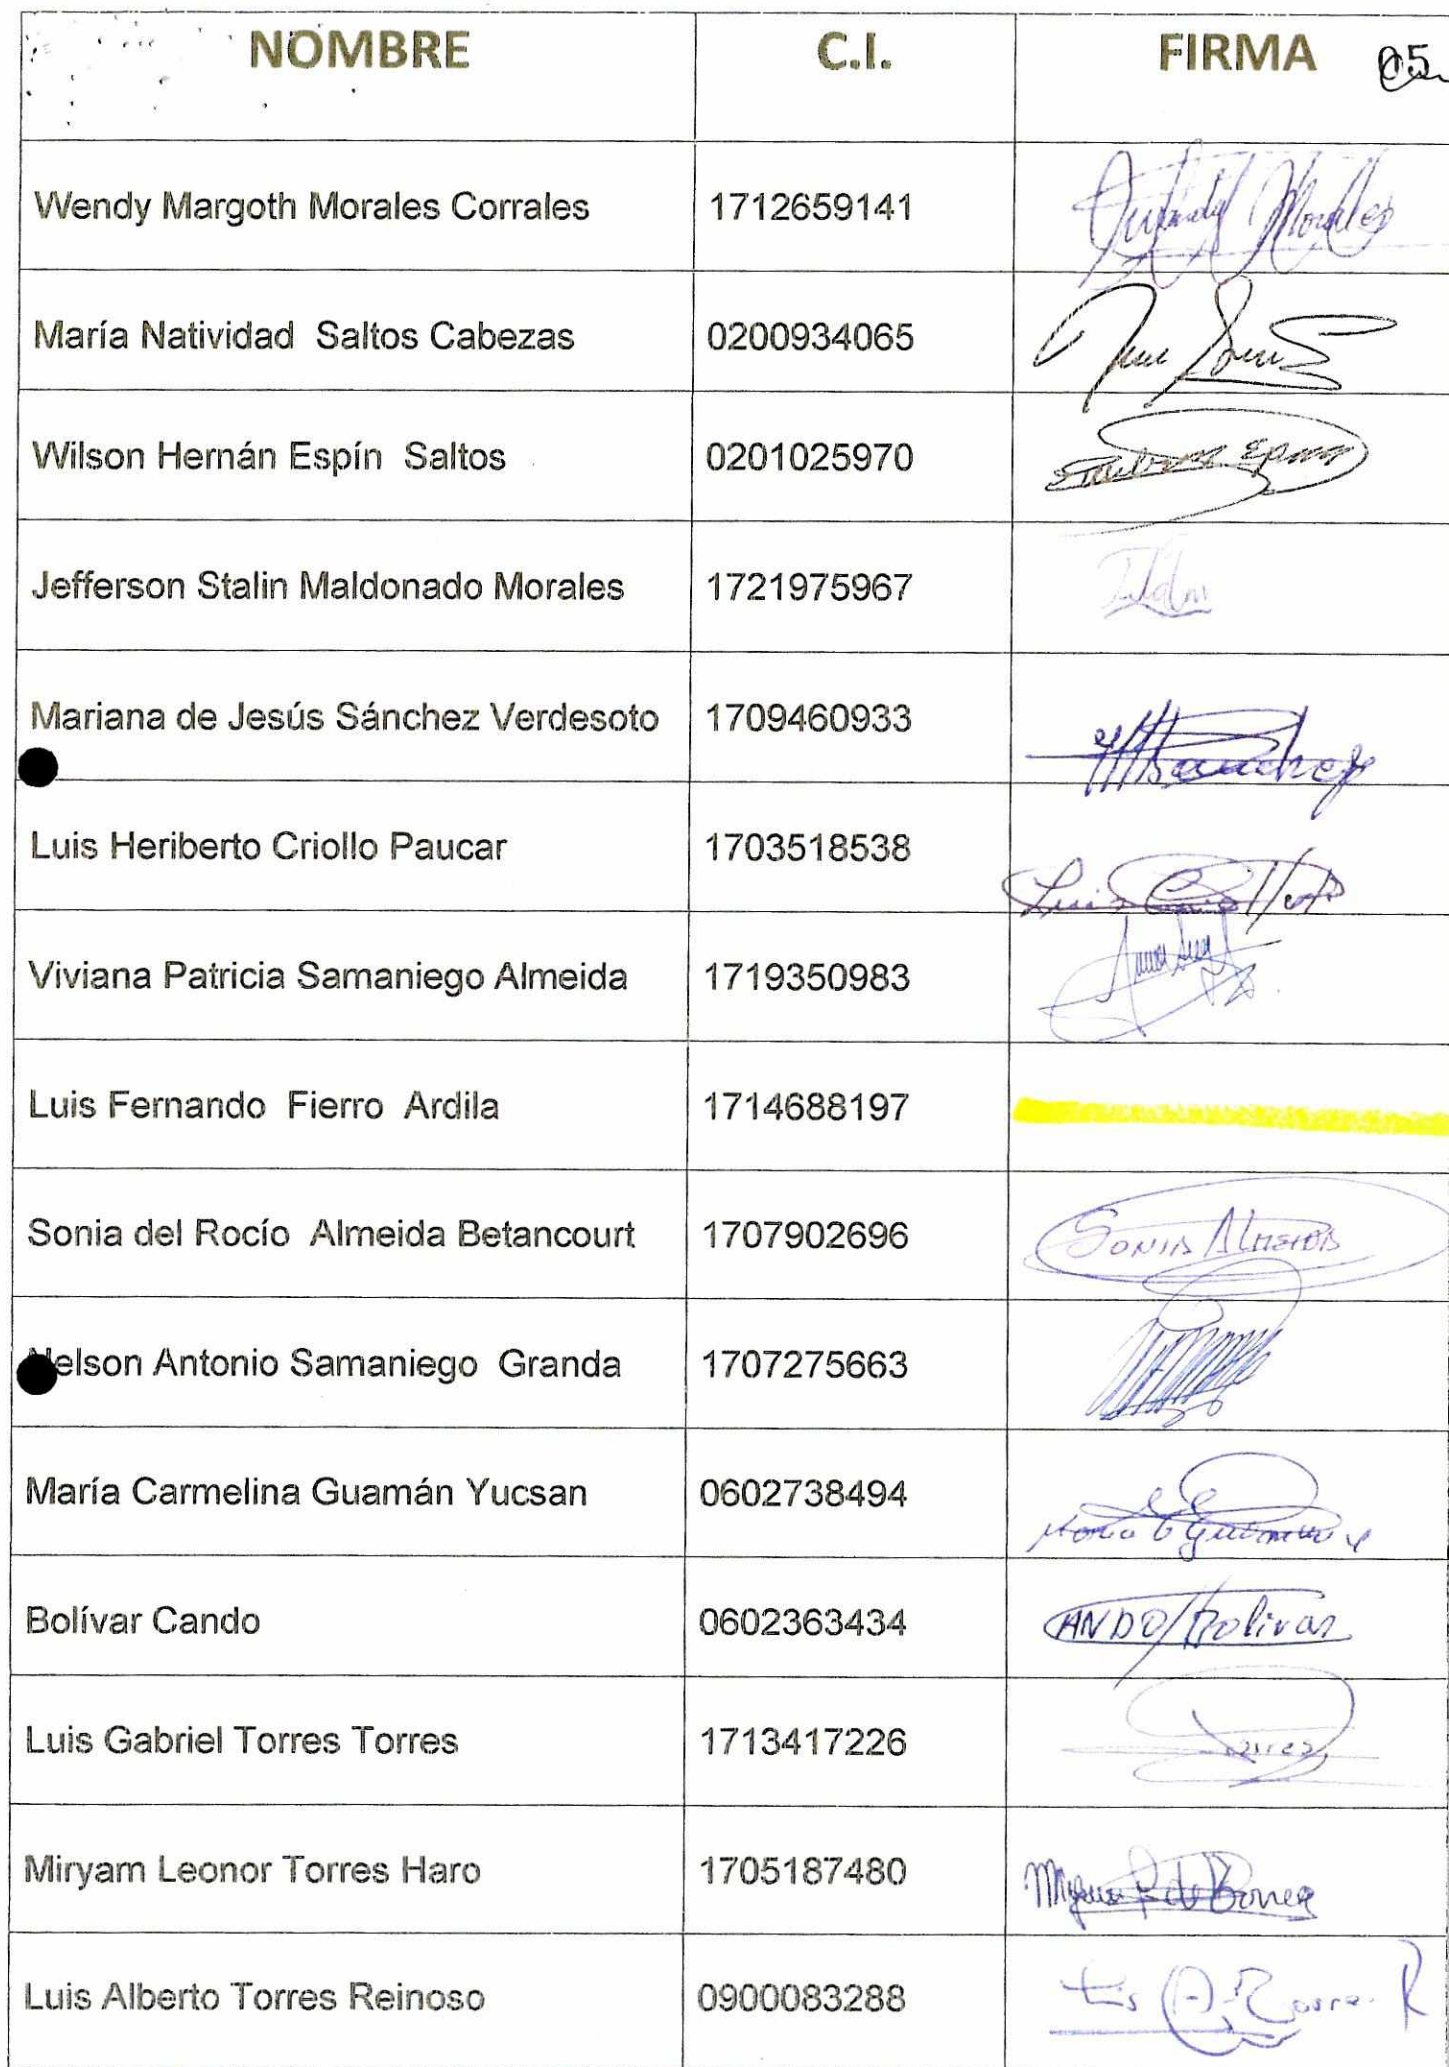 NOMBRE C.I. FIRMA 05
Wendy Margoth Morales Corrales 1712659141 Wendy Morales
María Natividad Saltos Cabezas 0200934065
Wilson Hernán Espín Saltos 0201025970
Jefferson Stalin Maldonado Morales 1721975967
Mariana de Jesús Sánchez Verdesoto 1709460933 Sanchez
Luis Heriberto Criollo Paucar 1703518538 Luis Criollo P
Viviana Patricia Samaniego Almeida 1719350983
Luis Fernando Fierro Ardila 1714688197
Sonia del Rocío Almeida Betancourt 1707902696 SONIA ALMEIDA
Nelson Antonio Samaniego Granda 1707275663
María Carmelina Guamán Yucsan 0602738494
Bolívar Cando 0602363434 CANDO Bolivar
Luis Gabriel Torres Torres 1713417226 Torres
Miryam Leonor Torres Haro 1705187480
Luis Alberto Torres Reinoso 0900083288